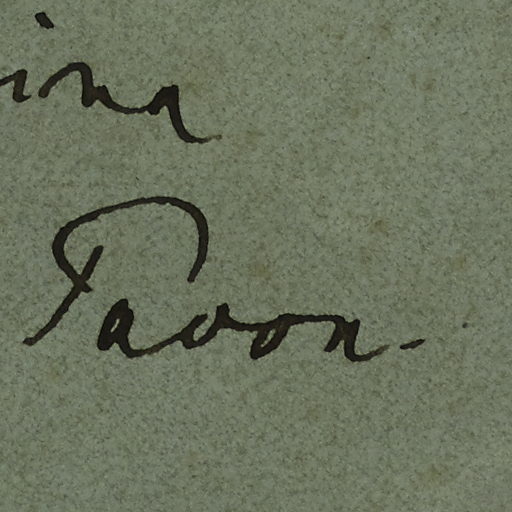 ina
Pavon.